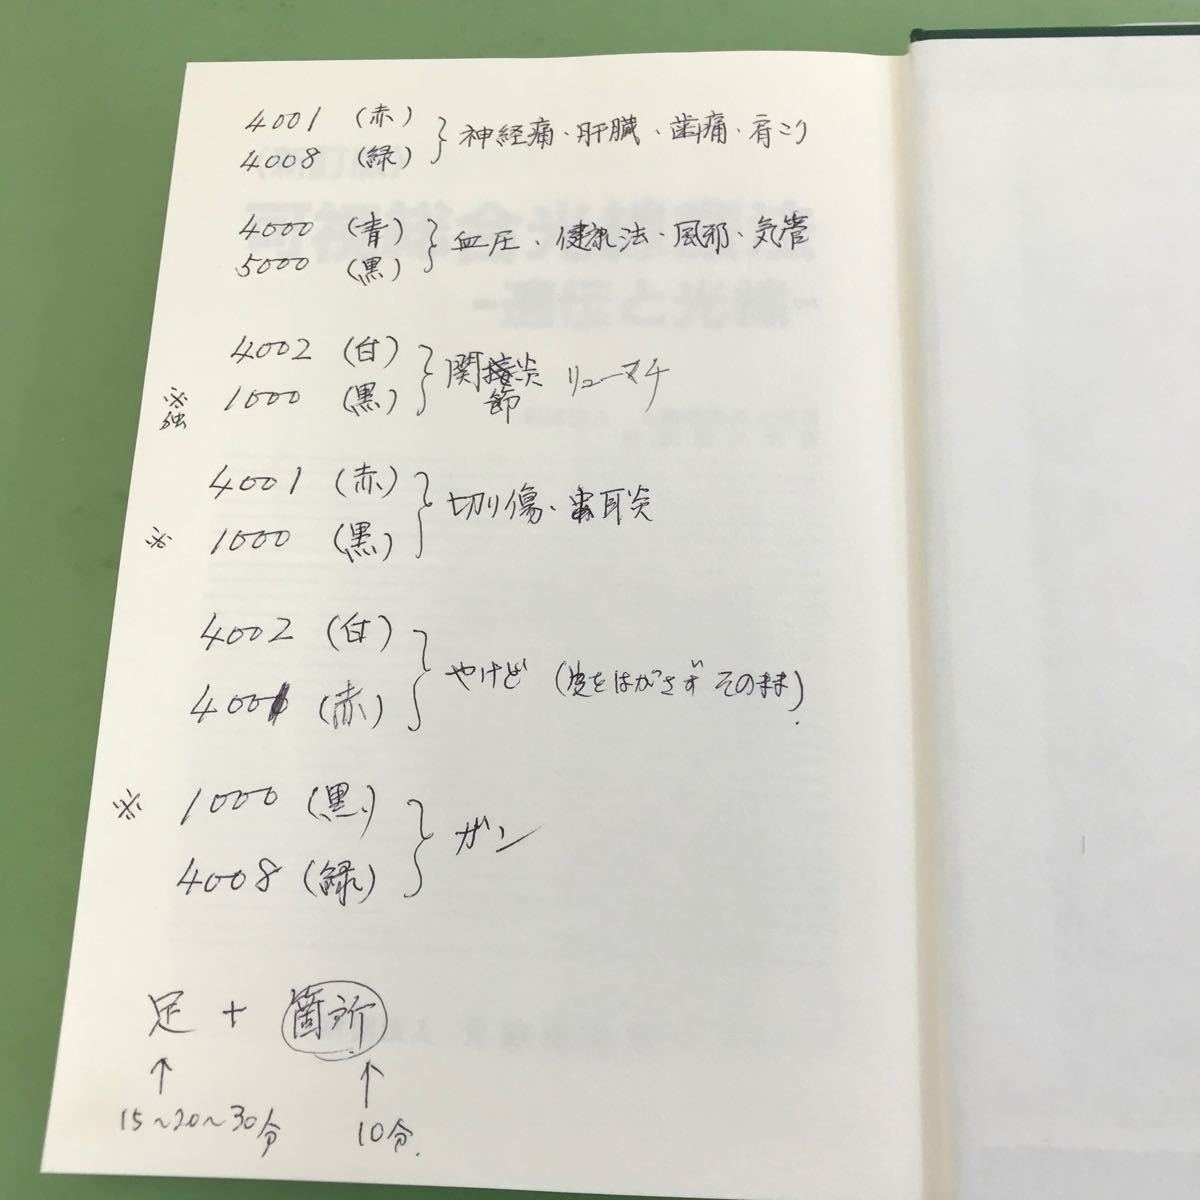 4001 (赤)
4008 (緑) } 神経痛・肝臓・歯痛・肩こり
4000 (青)
5000 (黒) } 血圧・健康法・風邪・気管
4002 (白)
※ 1000 (黒) } 関節炎 リューマチ
強
4001 (赤)
※ 1000 (黒) } 切り傷・中耳炎
4002 (白)
4001 (赤) } やけど (皮をはがさず そのまま)
※ 1000 (黒)
4008 (緑) } ガン
足 + 箇所
↑ ↑
15~20~30分 10分.
(新訂版)
可視総合光線療法
-遺伝と光線-